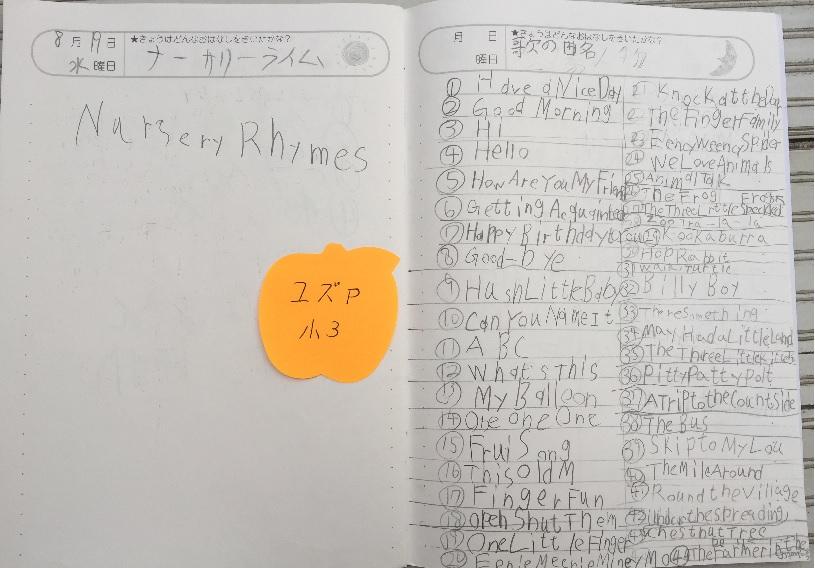 8月19日
水曜日
★きょうはどんなおはなしをきいたかな?
ナーサリーライム
Nursery Rhymes
ユズP
小3
月 日
曜日
★きょうはどんなおはなしをきいたかな?
歌の曲名
① Have a Nice Day
② Good Morning
③ Hi
④ Hello
⑤ How Are You My Frien
⑥ Getting Acquainted
⑦ Happy Birthday to You
⑧ Good-bye
⑨ Hush Little Baby
⑩ Can You Name It
⑪ A BC
⑫ What's This
⑬ My Balloon
⑭ One One One
⑮ Frui Song
⑯ This Old M
⑰ Finger Fun
⑱ open Shut Them
⑲ One Little Finger
⑳ Eenie Meenie Miney Mo
Knock at the
The Finger Family
Eency Weency Spider
㉔ We Love Animals
㉕ Animal Talk
The Frog
The Three Little Speckled Frogs
㉙ Kookaburra
Hop Rabbit
㉛ Walk Turtle
㉜ Billy Boy
㉝ Theres me thing
㉞ Mary Had a Little Lamb
㉟ The Three Little Kittens
㊱ Pitty Patty Polt
㊲ A Trip to the Count Side
㊳ The Bus
㊴ Skip to My Lou
The Mile Around
Round the Village
㊷ Under the spreading
Chestnut Tree
㊹ The Farmer In the